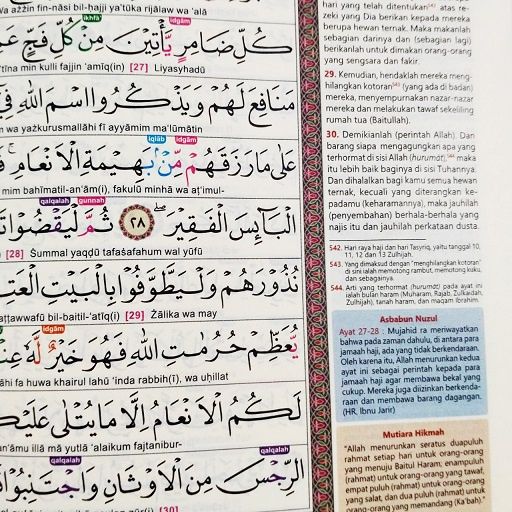 Wa ażżin fin-nāsi bil-ḥajji ya'tūka rijālaw wa 'alā
ikhfā' idgām
كُلِّ ضَامِرٍ يَّأْتِيْنَ مِنْ كُلِّ فَجٍّ
min kulli fajjin 'amīq(in) [27] Liyasyhadū
مَنَافِعَ لَهُمْ وَيَذْكُرُوا اسْمَ اللّٰهِ فِيْٓ
wa yażkurusmallāhi fī ayyāmim ma'lūmātin
iqlāb idgām
عَلٰى مَا رَزَقَهُمْ مِّنْۢ بَهِيْمَةِ الْاَنْعَامِ
mim bahīmatil-an'ām(i), fakulū minhā wa aṭ'imul-
qalqalah gunnah
الْبَاۤىِٕسَ الْفَقِيْرَ ۖ ٢٨ ثُمَّ لْيَقْضُوْا
[28] Ṡummal yaqḍū tafaṡahum wal yūfū
نُذُوْرَهُمْ وَلْيَطَّوَّفُوْا بِالْبَيْتِ
bil-baitil-'atīq(i) [29] Żālika wa may
idgām
يُّعَظِّمْ حُرُمٰتِ اللّٰهِ فَهُوَ خَيْرٌ لَّهٗ
fa huwa khairul lahū 'inda rabbih(ī), wa uḥillat
لَكُمُ الْاَنْعَامُ اِلَّا مَا يُتْلٰى
illā mā yutlā 'alaikum fajtanibur-
qalqalah qalqalah
الرِّجْسَ مِنَ الْاَوْثَانِ وَاجْتَنِبُوْا
[30]
hari yang telah ditentukan⁵⁴² atas re-
zeki yang Dia berikan kepada mereka
berupa hewan ternak. Maka makanlah
sebagian darinya dan (sebagian lagi)
berikanlah untuk dimakan orang-orang
yang sengsara dan fakir.
29. Kemudian, hendaklah mereka meng-
hilangkan kotoran⁵⁴³ (yang ada di badan)
mereka, menyempurnakan nazar-nazar
mereka dan melakukan tawaf sekeliling
rumah tua (Baitullah).
30. Demikianlah (perintah Allah). Dan
barang siapa mengagungkan apa yang
terhormat di sisi Allah (hurumāt),⁵⁴⁴ maka
itu lebih baik baginya di sisi Tuhannya.
Dan dihalalkan bagi kamu semua hewan
ternak, kecuali yang diterangkan ke-
padamu (keharamannya), maka jauhilah
(penyembahan) berhala-berhala yang
najis itu dan jauhilah perkataan dusta.
542. Hari raya haji dan hari Tasyriq, yaitu tanggal 10,
11, 12 dan 13 Zulhijah.
543. Yang dimaksud dengan "menghilangkan kotoran"
di sini ialah memotong rambut, memotong kuku,
dan sebagainya.
544. Arti yang terhormat (hurumāt) pada ayat ini
ialah bulan haram (Muharam, Rajab, Zulkaidah,
Zulhijah), tanah haram, dan maqam Ibrahim.
Asbabun Nuzul
Ayat 27-28 : Mujahid ra meriwayatkan
bahwa pada zaman dahulu, di antara para
jamaah haji, ada yang tidak berkendaraan.
Oleh karena itu, Allah menurunkan kedua
ayat ini sebagai perintah kepada para
jamaah haji agar membawa bekal yang
cukup. Mereka juga diizinkan berkenda-
raan dan membawa barang dagangan.
(HR. Ibnu Jarir)
Mutiara Hikmah
"Allah menurunkan seratus duapuluh
rahmat setiap hari untuk orang-orang
yang menuju Baitul Haram, enampuluh
(rahmat) untuk orang-orang yang tawaf,
empat puluh (rahmat) untuk orang-orang
yang salat, dan dua puluh (rahmat) untuk
orang-orang yang memandang (Ka'bah)."